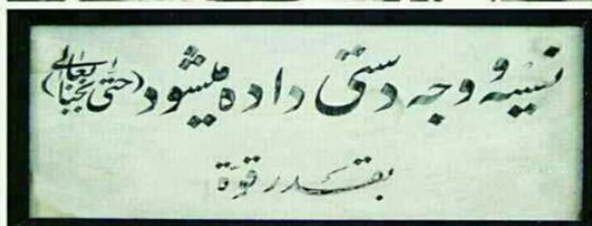 نسیه و وجه دستی داده میشود (حتی بجنابعالی)
بقدر قوة